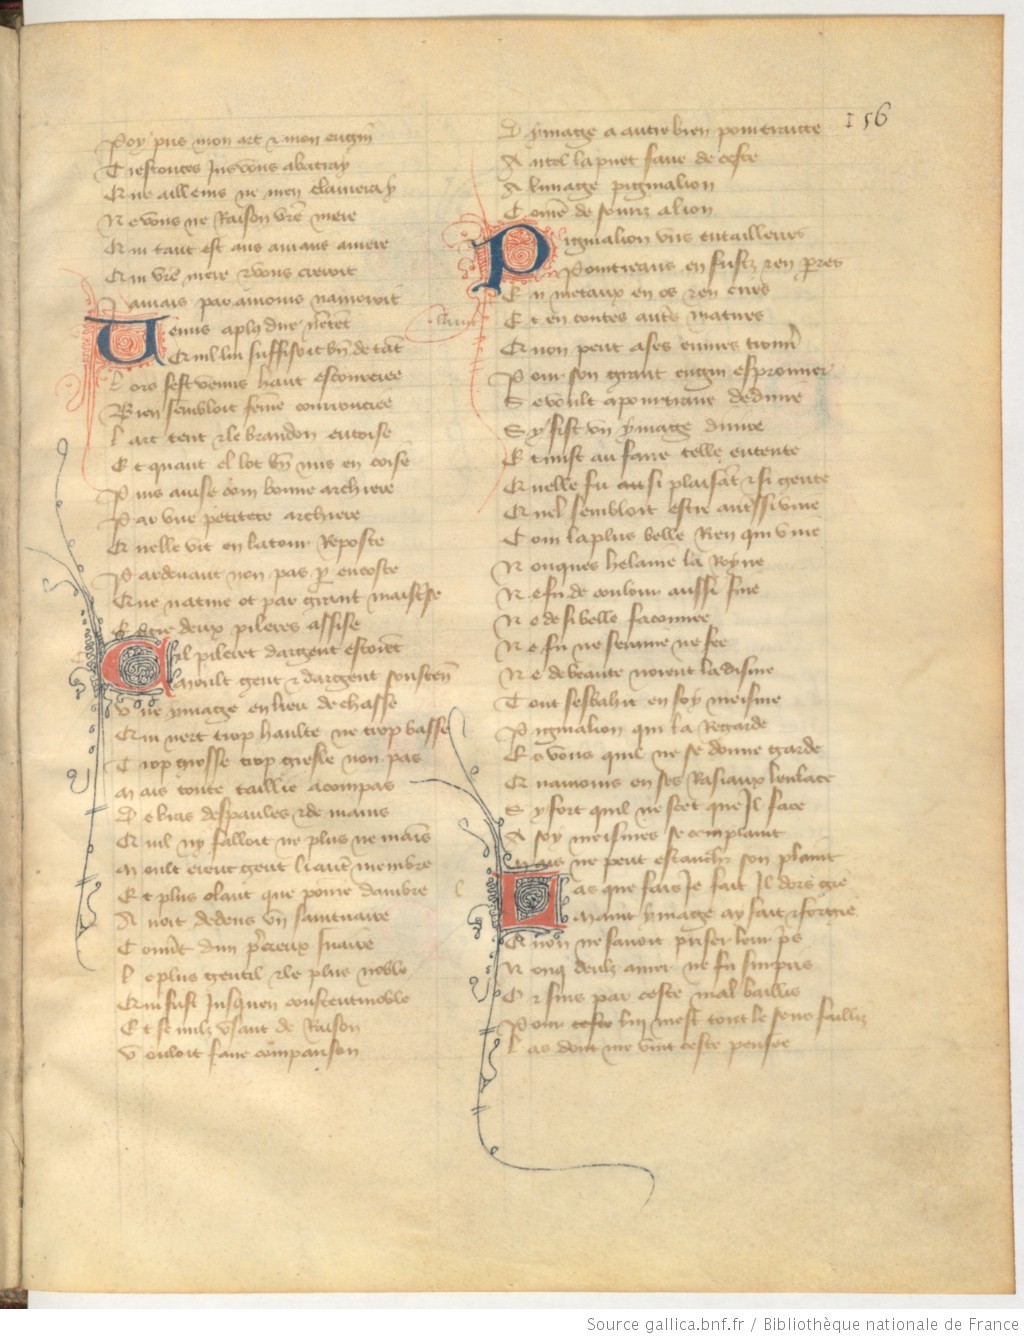 156
Poy pris mon arc & mon engin
Trestouts jus vous abatray
Que ailleurs ne men clameray
Ne vous ne Raison vrẽ mere
Qui tant est aus amans amere
Qui vrẽ mere & vous creroit
Jamais par amours nameroit
Venus a plꝯ dire nẽtẽt
Qͥl lui suffisoit bñ de tãt
Lors sest venus hault escourciee
Bien sembloit feme courrouciee
Larc tent & le brandon entoise
Et quant el lot bñ mis en coise
Puis auise com bonne archiere
Par vne petitete archiere
Quelle vit en la tour Reposte
Par deuant non pas ꝑ encoste
Que nature ot par grant maistrise
Entre deux pileres assise
Cil pileret dargent estoiẽt
Moult gent & dargent soustenoiẽt
Vne ymage en lieu de chasse
Qui nert trop haulte ne trop basse
Trop grosse trop gresle non pas
Mais toute taillie a compas
De bras despaules & de mains
Qͥl ny falloit ne plus ne mains
Moult erent gent li autͤ membre
Et plus olant que pome dambre
Auoit dedens vñ saintuaire
Couuẽt dun pͥcieux suaire
Le plus gentil & le plus noble
Qui fust jusquen constentinoble
Et se nulz vsant de Raison
Vouloit faire comparaison
Dymage a autre bien pourtraitte
Autel la puet faire de ceste
A limage pigmalion
Come de souriz a lion
Pigmalion vns entailleurs
Pourtraians en fustz & en pierres
En metaux en os & en cires
Et en toutes autͤs matires
Quon peut a tes euures trouuer
Pour son grant engin esprouuer
Se voult a pourtraire deduire
Sy fist vn ymage diuire
Et mist au faire telle entente
Quelle fu aussi plaisãt & si gente
Quel sembloit estre autͤssi viue
Com la plus belle Rien qui viue
Nonques helaine la Royne
Ne fu de coulour aussi fine
Ne de si belle faconnee
Ne fu ne seraine ne fee
Ne de beaute norent la disme
Tout sesbahit en soy meisme
Pigmalion qui la Regarde
Et vous quil ne se donne garde
Quamours en ses Rasiaux lenlace
Sy fort quil ne scet que Il face
A soy meismes se complaint
Mais ne peut estanchr̃ son plaint
Las que fais je fait Il dors gie
Maint ymage ay fait & forgie
Quon ne sauoit priser leur pͥs
Nonq deulz amer ne fu surpris
Or suis par ceste mal baillis
Pour ceste lui mest tout le sens failliz
Las dont me vint ceste pensee
Source gallica.bnf.fr / Bibliothèque nationale de France